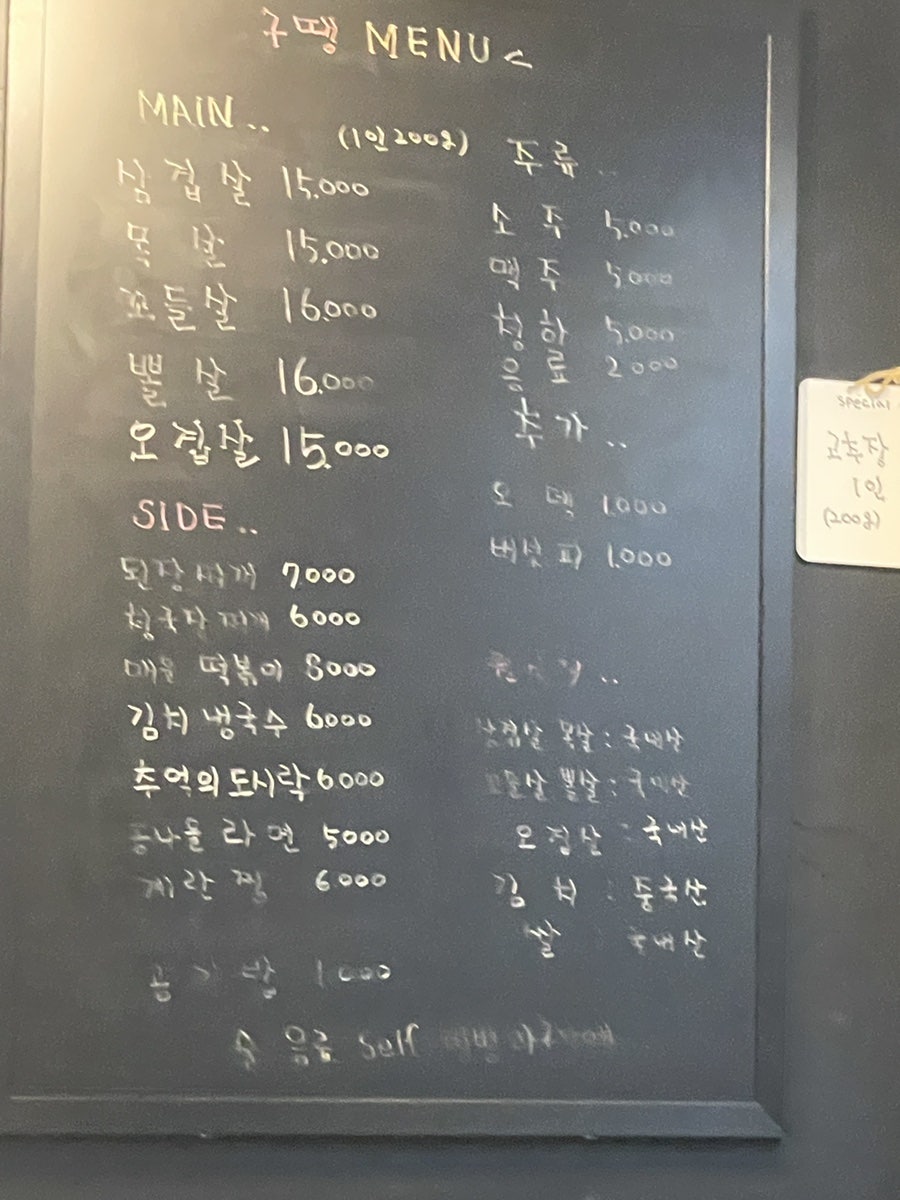 구땡 MENU
MAIN..
(1인 200g)
삼겹살 15,000
목살 15,000
꼬들살 16,000
뽈살 16,000
오겹살 15,000
SIDE..
된장찌개 7,000
청국장찌개 6000
매운 떡볶이 8000
김치 냉국수 6000
추억의 도시락 6000
콩나물 라면 5000
계란찜 6000
공기밥 1000
주류..
소주 5,000
맥주 5000
청하 5,000
음료 2000
추가..
오뎅 1000
버섯파 1,000
원산지..
삼겹살 목살 : 국내산
꼬들살 뽈살 : 국내산
오겹살 : 국내산
김치 : 중국산
쌀 국내산
술 음료 Self
special
고추장
1인
(200g)